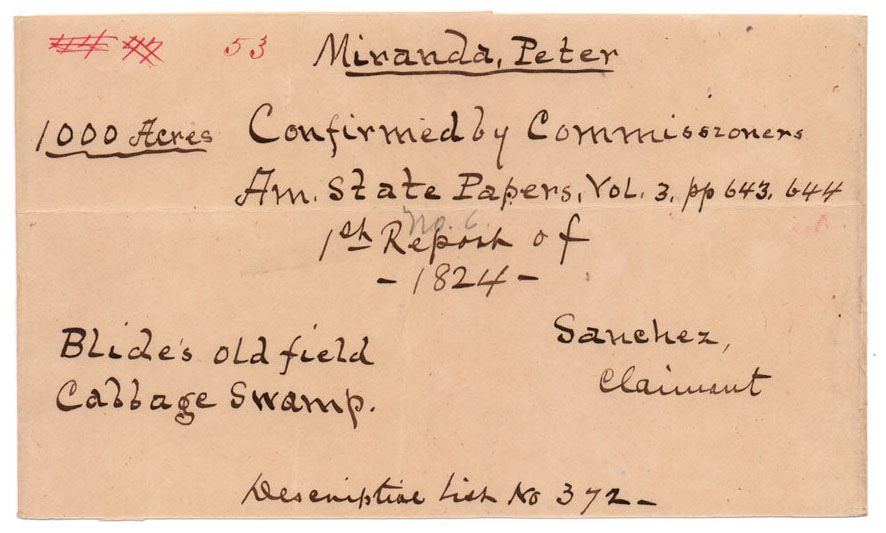 53
Miranda, Peter
1000 Acres Confirmed by Commissioners
Am. State Papers, Vol. 3, pp 643, 644
No. 6.
1st Report of
- 1824 -
Blide's old field
Cabbage Swamp.
Sanchez,
Claimant
Descriptive List No 372-